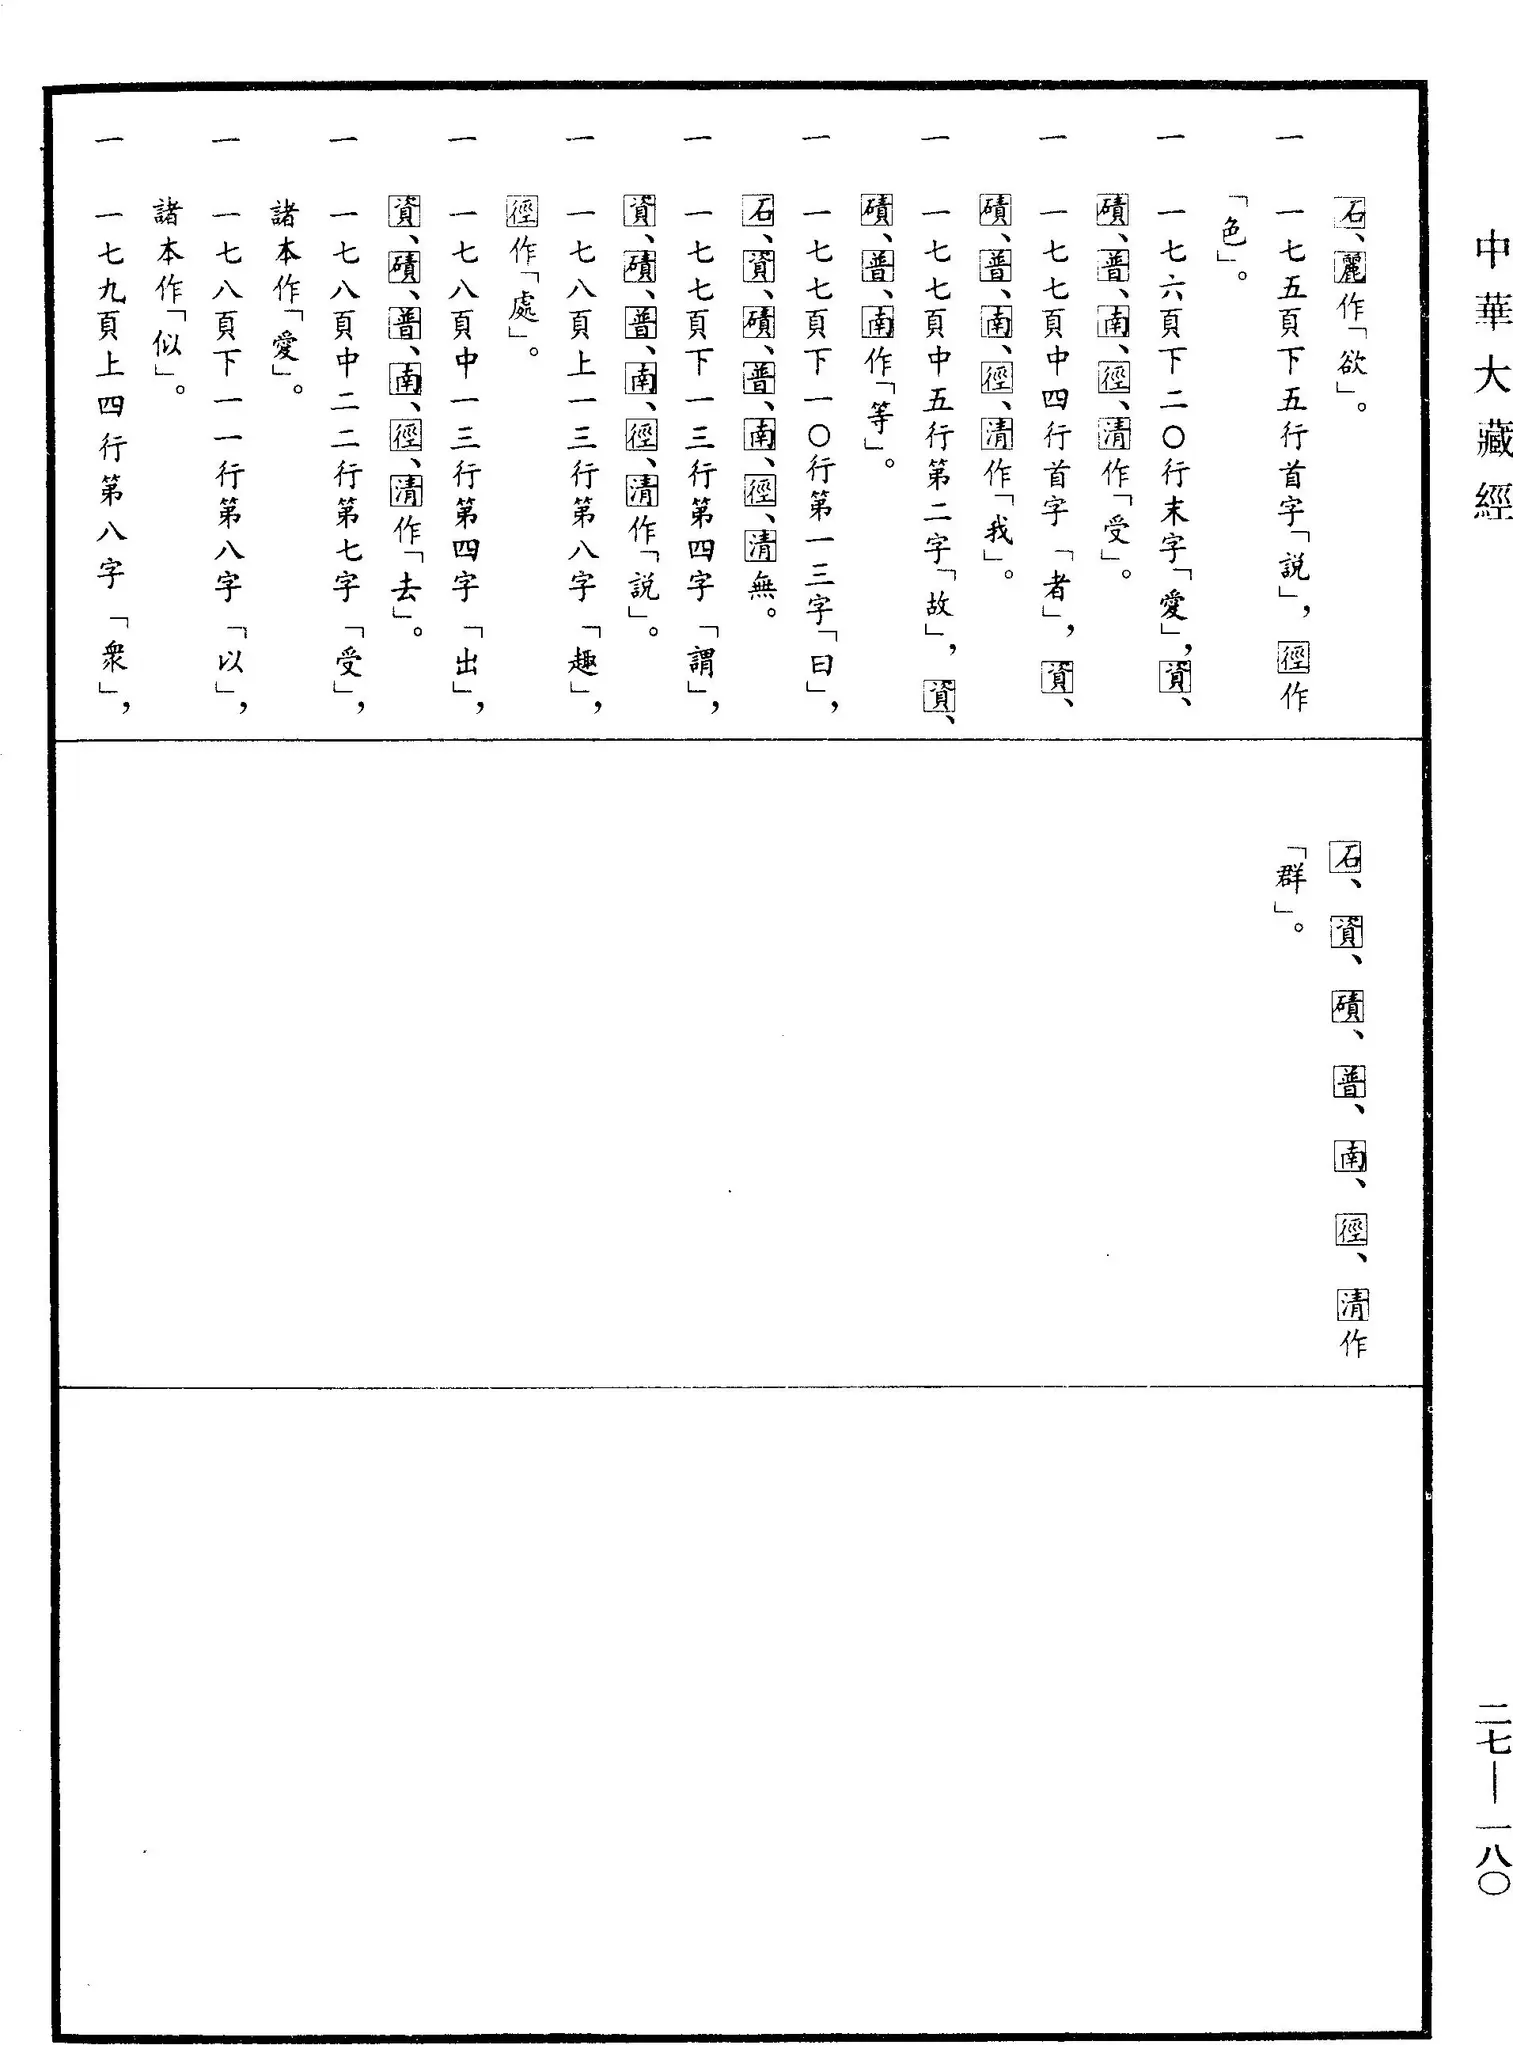 中華大藏經
石、麗作「欲」。
一 一七五頁下五行首字「説」，徑作
「色」。
一 一七六頁下二〇行末字「愛」，資、
磧、普、南、徑、清作「受」。
一 一七七頁中四行首字「者」，資、
磧、普、南、徑、清作「我」。
一 一七七頁中五行第二字「故」，資、
磧、普、南作「等」。
一 一七七頁下一〇行第一三字「曰」，
石、資、磧、普、南、徑、清無。
一 一七七頁下一三行第四字「謂」，
資、磧、普、南、徑、清作「説」。
一 一七八頁上一三行第八字「趣」，
徑作「處」。
一 一七八頁中一三行第四字「出」，
資、磧、普、南、徑、清作「去」。
一 一七八頁中二二行第七字「受」，
諸本作「愛」。
一 一七八頁下一一行第八字「以」，
諸本作「似」。
一 一七九頁上四行第八字「衆」，
石、資、磧、普、南、徑、清作
「群」。
二七—一八〇